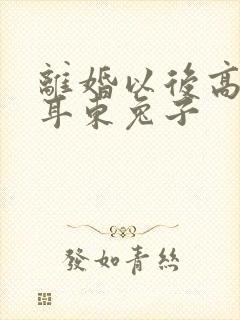 離婚以後高
耳東兔子
發如青絲